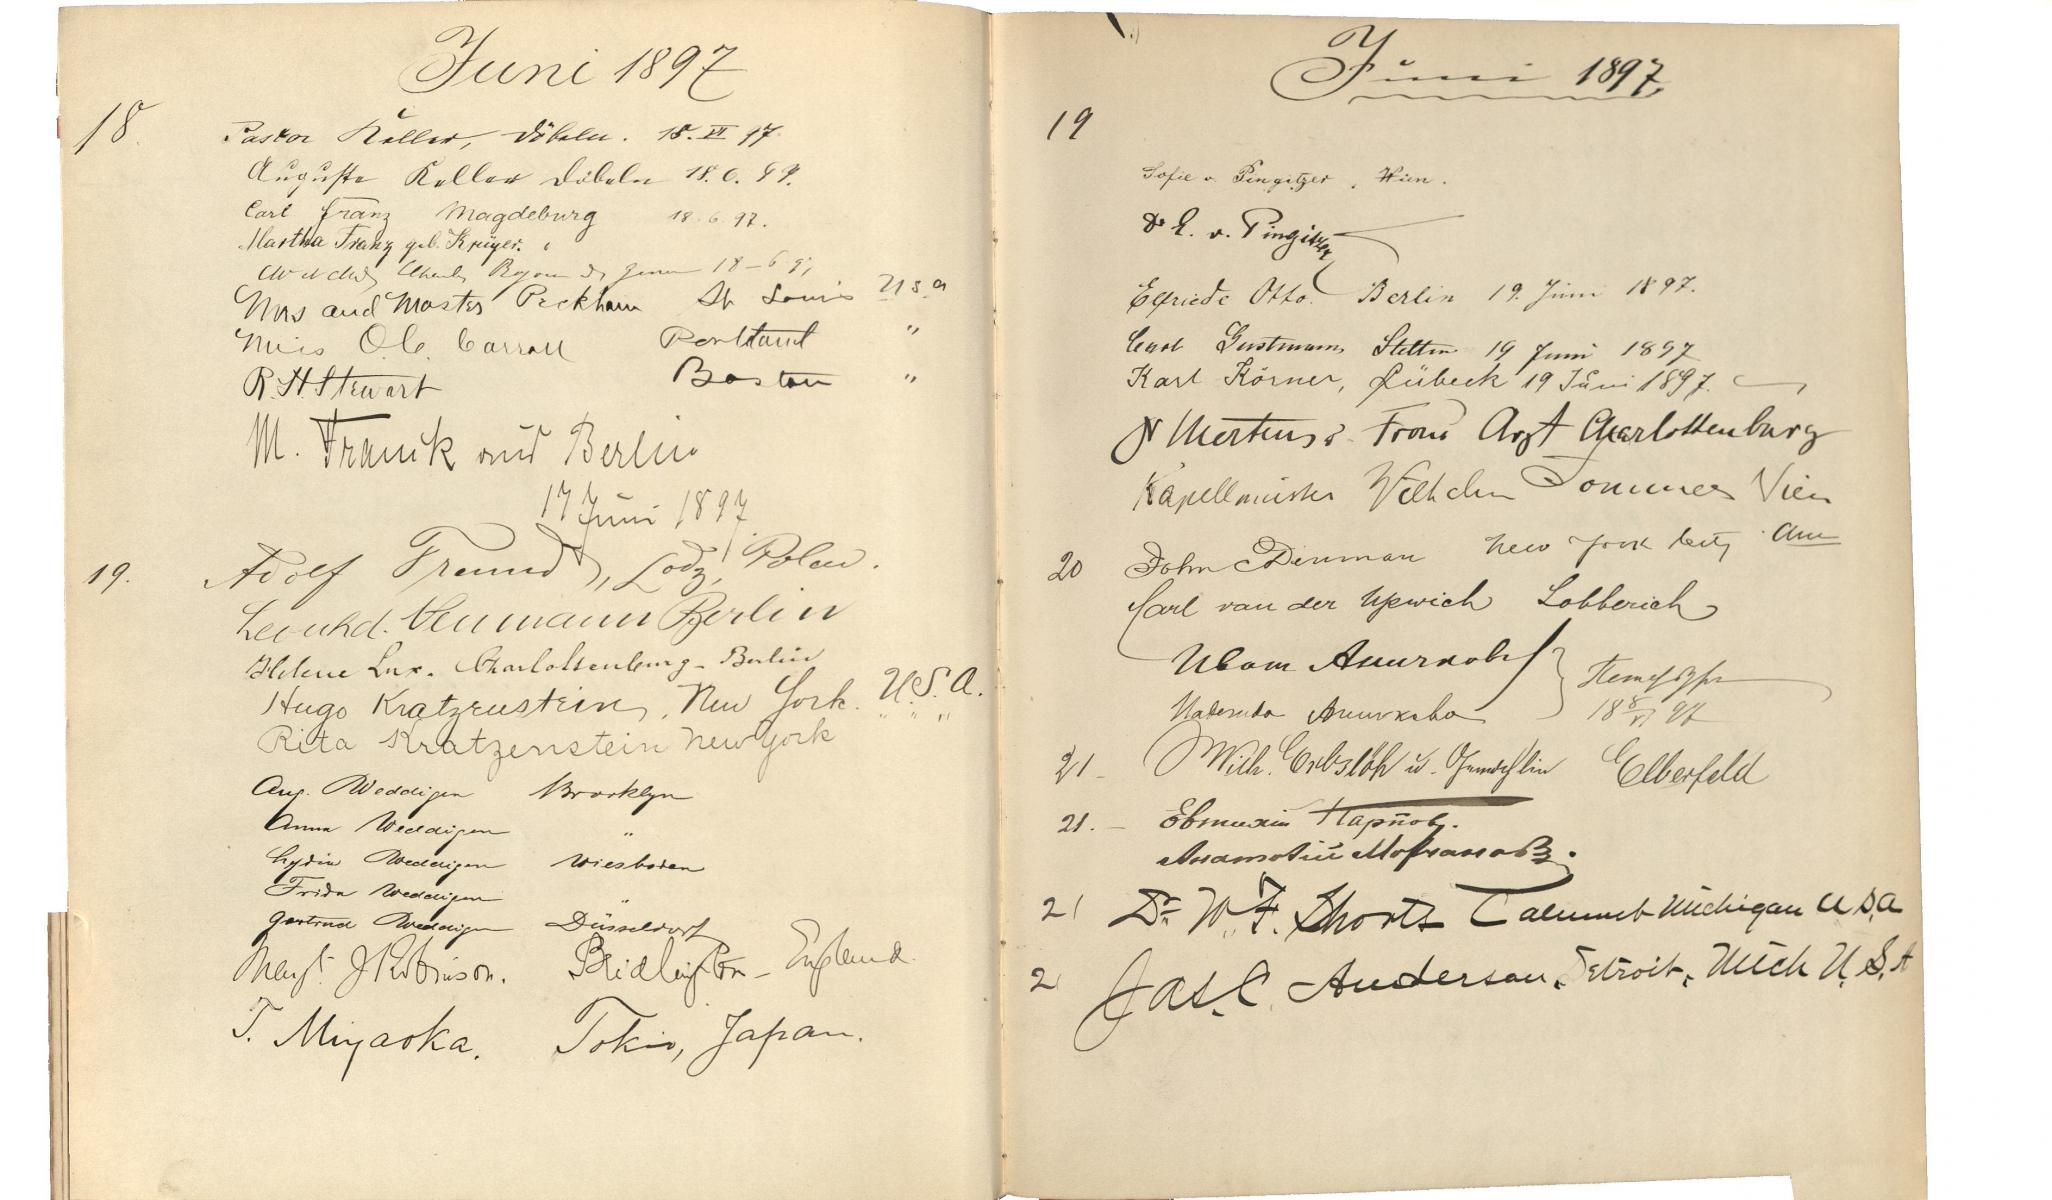 Juni 1897
18.
Pastor Keller, Döbeln. 18. VI 97
Auguste Keller Döbeln 18. 6. 97.
Carl Franz Magdeburg 18.6.97.
Martha Franz geb. Krüger. "
18-6 97
Mrs and Master Peckham St Louis U S a
Miss O. C. Carroll Portland "
R. H. Stewart Boston "
M. Franck und Berlin
17 Juni 1897
19. Adolf Freund, Lodz, Polen.
Leonhd. Neumann Berlin
Helene Lux. Charlottenburg - Berlin
Hugo Kratzenstein, New York. U.S.A.
Rita Kratzenstein New York " " "
Aug. Weddigen Brooklyn
Anna Weddigen "
Lydia Weddigen Wiesbaden
Frida Weddigen "
Gertrud Weddigen Düsseldorf
Margt. J Robinson. Bridlington - England.
T. Miyaoka. Tokio, Japan.
Juni 1897.
19
Sofie v. Pingitzer, Wien.
Dr E. v. Pingitzer
Elfriede Otto. Berlin 19. Juni 1897.
Carl Gustmann Stettin 19 Juni 1897
Karl Körner, Lübeck 19 Juni 1897.
Dr Mertens & Frau Arzt Charlottenburg
Kapellmeister Wilhelm Sommer Wien
20 John Dinman New York City Am
Carl van der Upwich Lobberich
Иван Аничковъ
Надежда Аничкова 18 8/VI 97
21 - Wilh. Erbslöh u. Elberfeld
21. - Евтихий Карпов.
Анатолий
21 Dr. W. F. Shorts Calumet Michigan U S A
2 Jas. C. Anderson. Detroit. Mich U.S.A